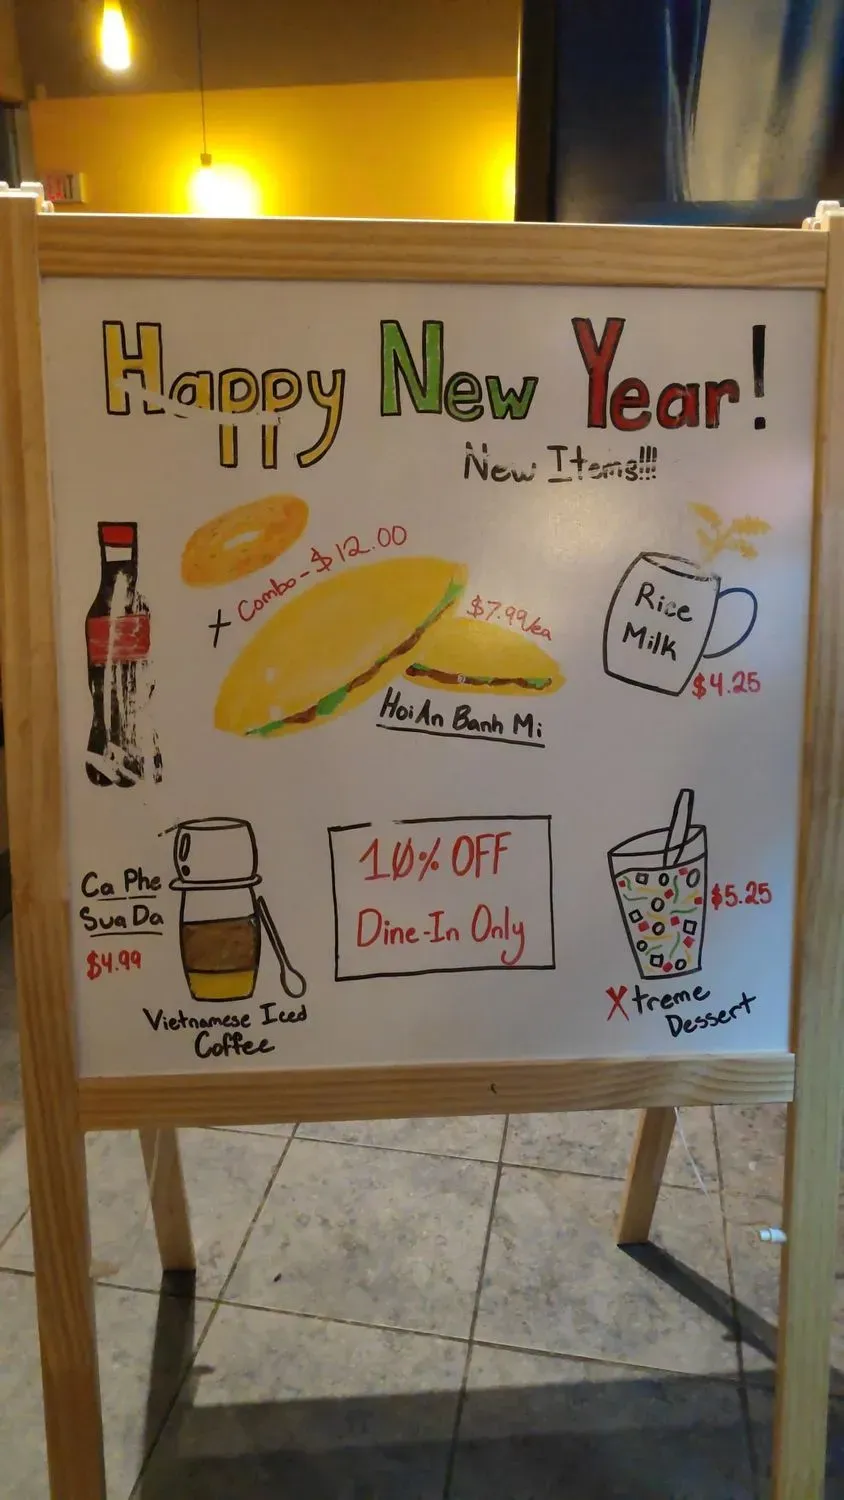 Happy New Year!
New Items!!!
+ Combo - $12.00
$7.99/ea
Hoi An Banh Mi
Rice
Milk
$4.25
Ca Phe
Sua Da
$4.99
Vietnamese Iced
Coffee
10% OFF
Dine-In Only
$5.25
Xtreme
Dessert